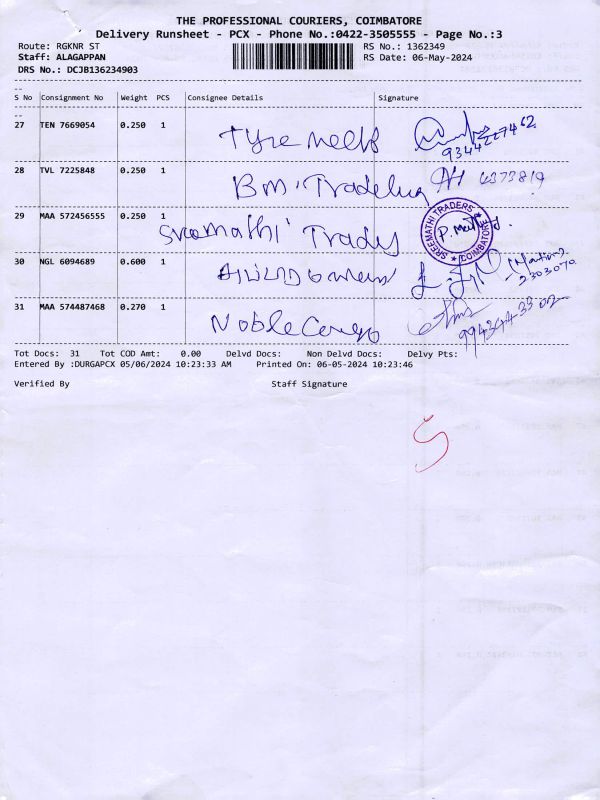 THE PROFESSIONAL COURIERS, COIMBATORE
Delivery Runsheet - PCX - Phone No.:0422-3505555 - Page No.:3
Route: RGKNR ST RS No.: 1362349
Staff: ALAGAPPAN RS Date: 06-May-2024
DRS No.: DCJB136234903
S No Consignment No Weight PCS Consignee Details Signature
27 TEN 7669054 0.250 1 Tyre
9344227462
28 TVL 7225848 0.250 1 BM
29 MAA 572456555 0.250 1 Traders
SREEMATHI TRADERS
* COIMBATORE *
30 NGL 6094689 0.600 1
2303070
31 MAA 574487468 0.270 1 Noble Cargo
9943443302
Tot Docs: 31 Tot COD Amt: 0.00 Delvd Docs: Non Delvd Docs: Delvy Pts:
Entered By :DURGAPCX 05/06/2024 10:23:33 AM Printed On: 06-05-2024 10:23:46
Verified By Staff Signature
5